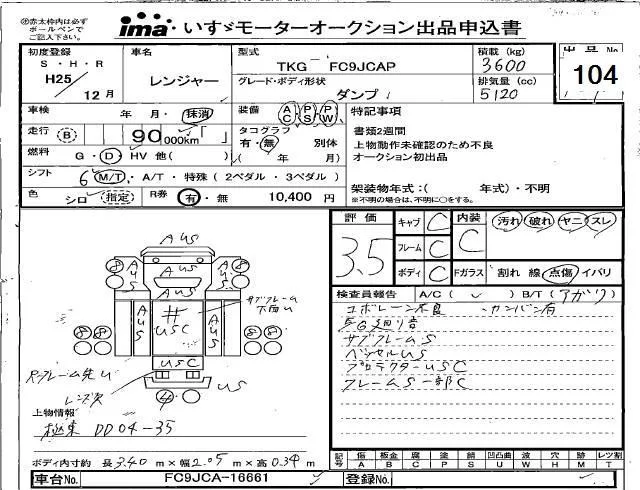 ㊟赤太枠内は必ず
ボールペンで
ご記入下さい。
ima いすゞモーターオークション出品申込書
初度登録 車名 型式 積載 (kg) 出品 No.
S・H・R
H25/12月 レンジャー TKG－FC9JCAP 3600 104
グレード・ボディ形状 排気量 (cc)
ダンプ 5120
車検 年・月・抹消 装備 AC PS PW 特記事項
走行 B 90,000km「 」 タコグラフ 書類2週間
有・無 別体 上物動作未確認のため不良
燃料 G・D・HV 他( ) ( 年 月) オークション初出品
シフト 6 M/T・A/T・特殊(2ペダル・3ペダル)
架装物年式:( 年式)・不明
色 シロ 指定 R券 有・無 10,400 円 ※不明の場合は、不明に○をする。
評価 キャブ C 内装 汚れ・破れ・ヤニ・スレ
3.5 フレーム C C
ボディ C Fガラス 割れ 線 点傷 イバリ
検査員報告 A/C( ✓ ) B/T(アガリ)
エボレーン不良 カンバン有
サブフレームS
ベッセルUS
プロテクターUSC
フレームS 一部C
AUS
AUS
AUS
AUS
AUS
AUS
AUS
USC
サブフレーム
下回り
USC
US
上物情報
極東 DD04-35
ボディ内寸約 長 3.40 m×幅 2.05 m×高 0.34 m
記号 傷 板金 腐 塗 錆 凹凸曲 波 穴 跡 レツ割
A B C P S U W H M T
車台No. FC9JCA-16661 登録No.